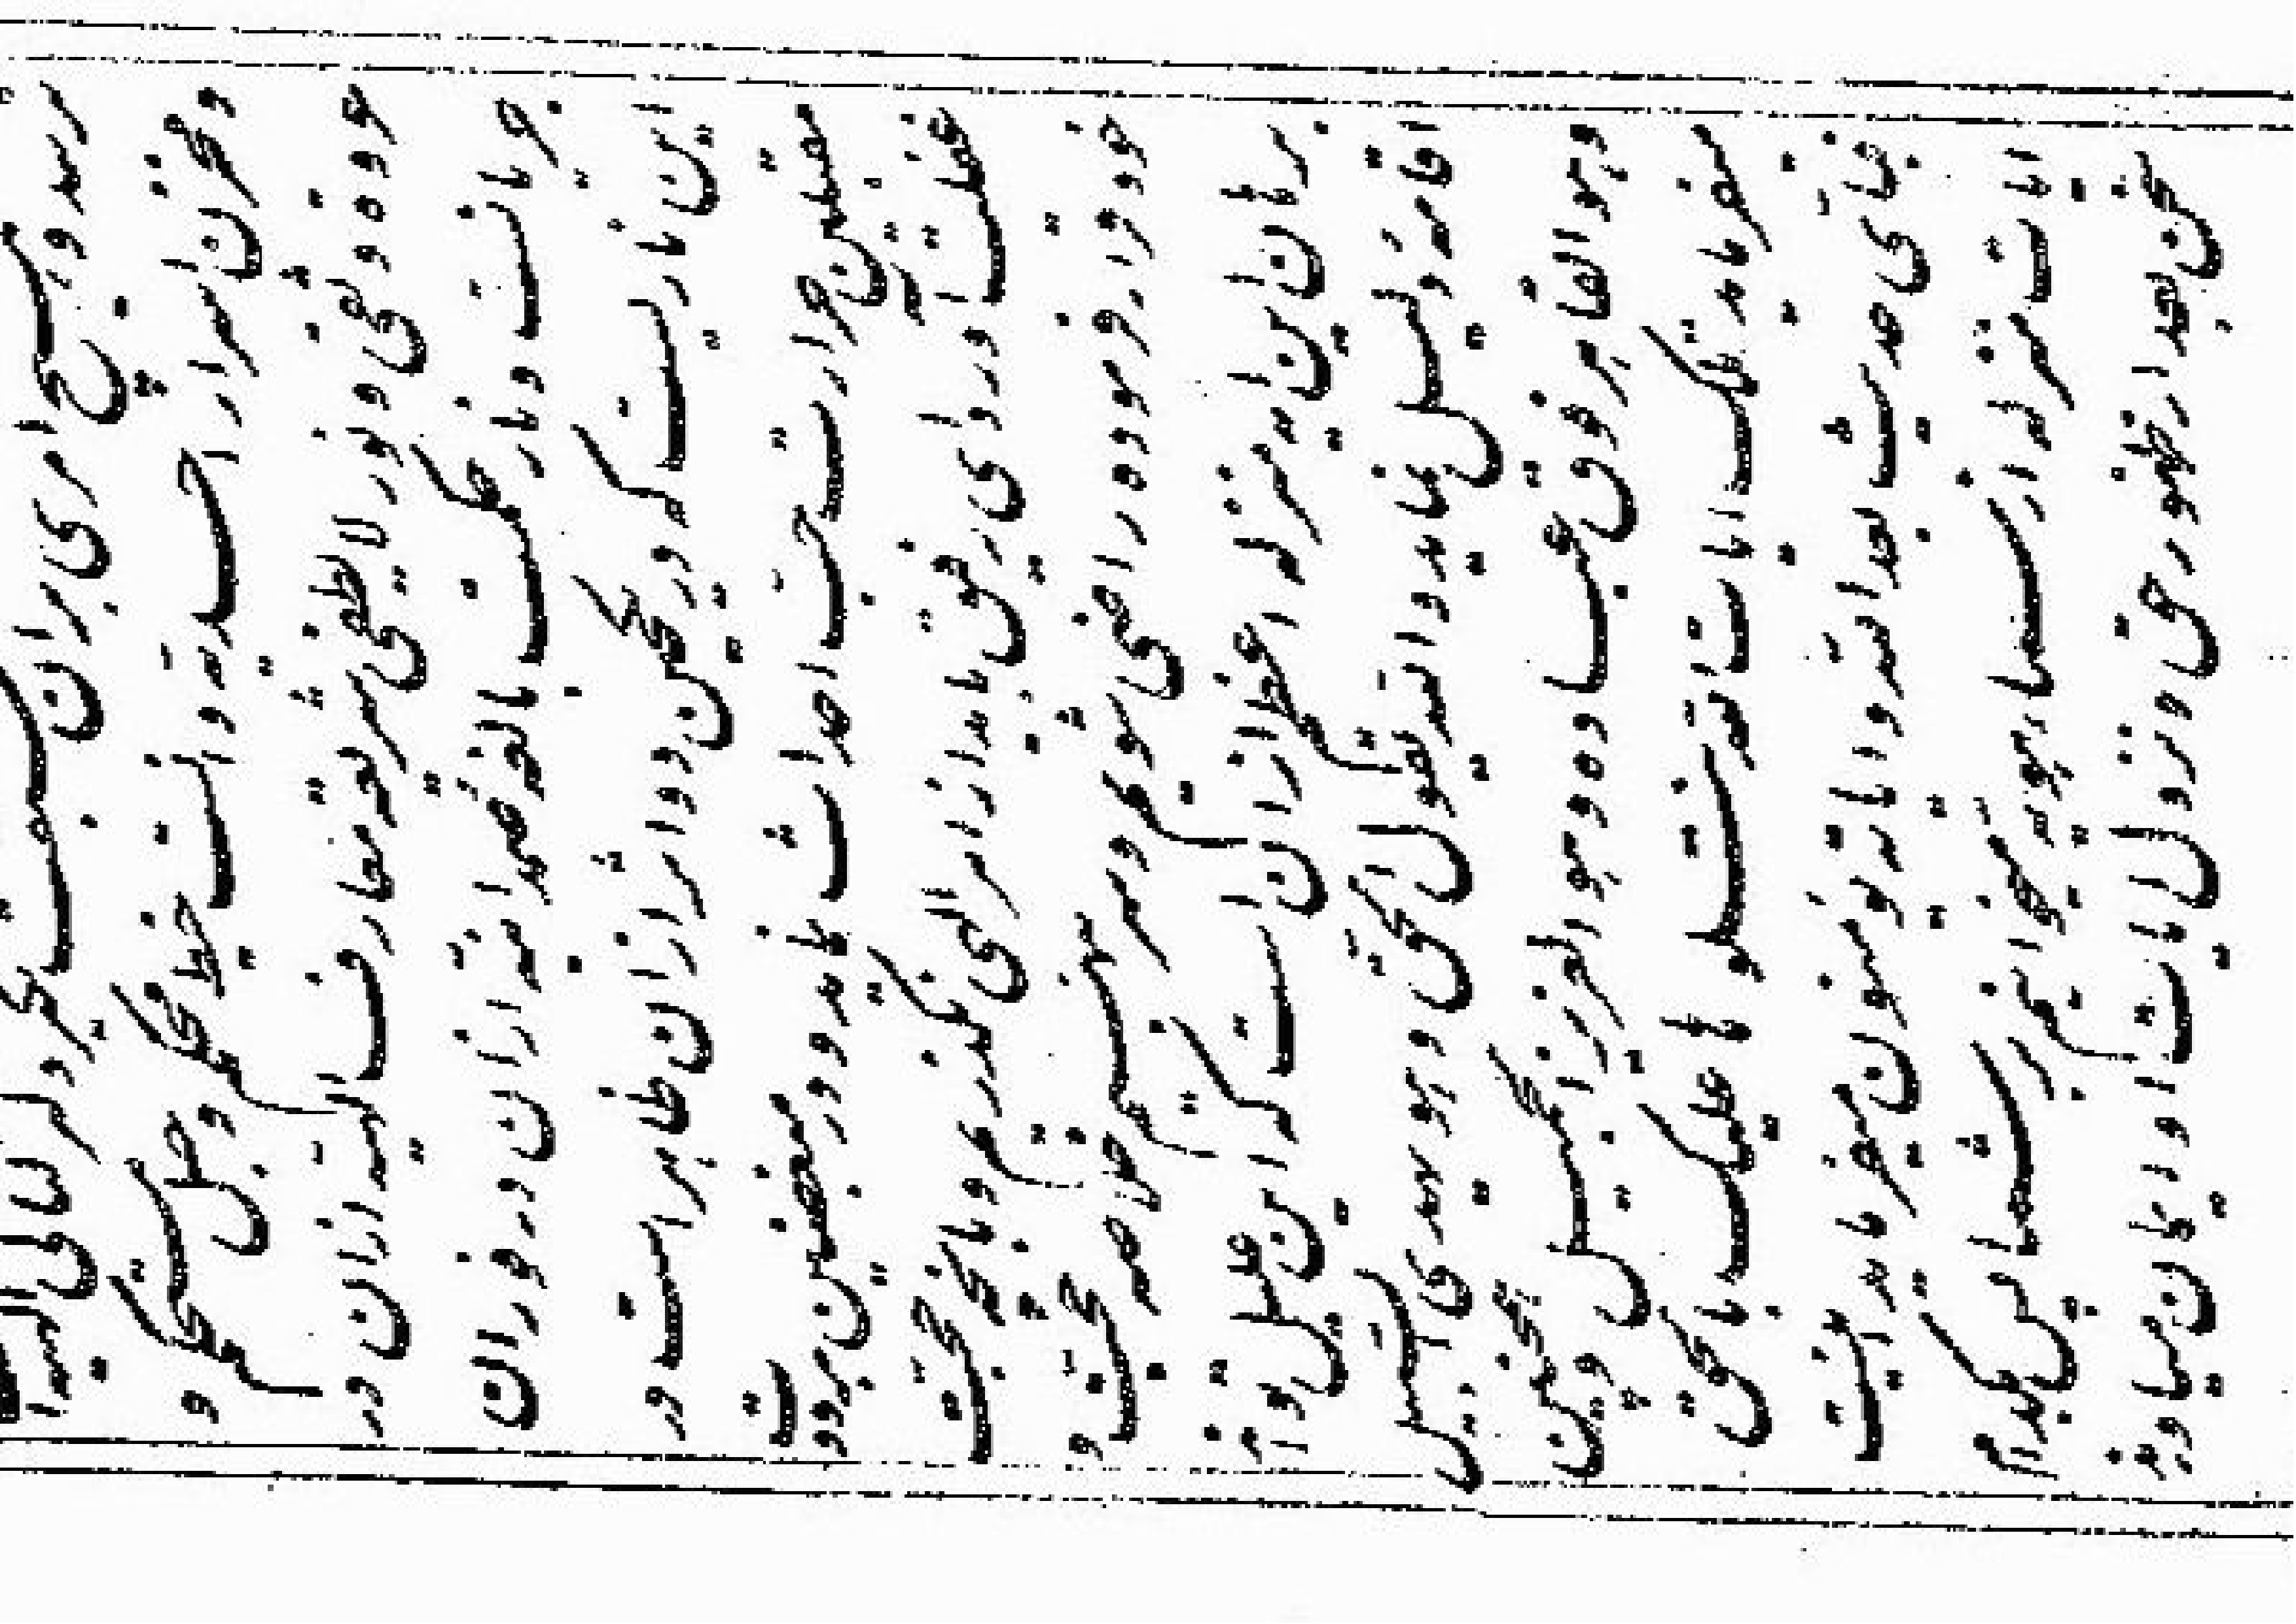 رسد و هیچ امری بران سبقت نگیرد کنز لئالی الهیه
و مخزن اسرار احدیه و انست خیط محکم و حبل مستحکم و
عروه وثقی و نور لا یطفی شریعه معارف الهیه ازان در
جریانست و نار حکمت بالغه صمدانیه ازان در فوران
این ناریست که در یک حین دو اثر ازان ظاهر است در
مقبلین حرارت حب احداث نماید و در مبغضین برودت
غفلت اورد ای رفیق باید از امر الهی نگذریم و بانچه حجت
خود قرار فرموده راضی شویم و سر بنهیم خلاصه حجت و
برهان این ایه منزله اعظم ازان است که این علیل تواند
اقامه دلیل نماید والله یقول الحق و هو یهدی السبیل
وهو القاهر فوق عباده وهو العزیز الجمیل و همچنین
میفرماید تلک ایات الله نتلوها علیک بالحق
فبای حدیث بعد الله و ایاته یومنون میفرماید اینست
ایات منزله از سماء هویه میخوانیم بر شما پس بکدام
سخن بعد از ظهور حق و نزول ایات او ایمان میاورند